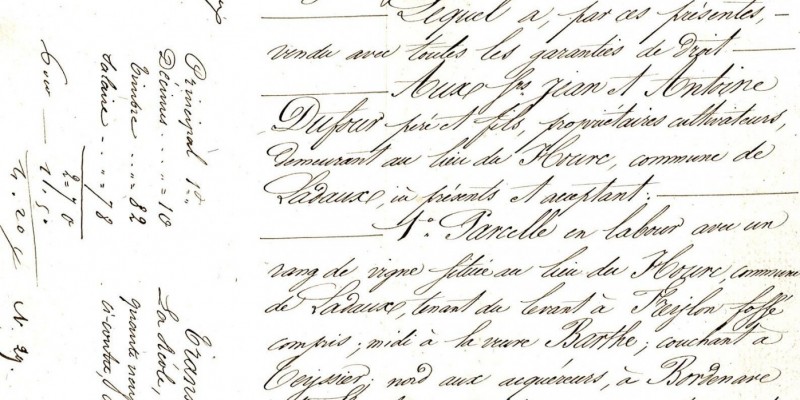 Lequel a, par ces présentes,
vendu avec toutes les garanties de droit
Aux srs Jean et Antoine
Dufour père et fils, propriétaires cultivateurs,
demeurant au lieu du Hourc, commune de
Ladaux, ici présents et acceptant:
1o Parcelle en labour avec un
rang de vigne située au lieu du Hourc, commune
de Ladaux, tenant du levant à Freylon fossé
compris; midi à la veuve Barthe; couchant à
Teyssier; nord aux acquéreurs, à Bordenave
Principal 1=
Décimes = 10
Timbre = 82
Salaire = 78
2=70
4.20
N. 29.
Trans
La Réole,
quante neuf
ci contre,